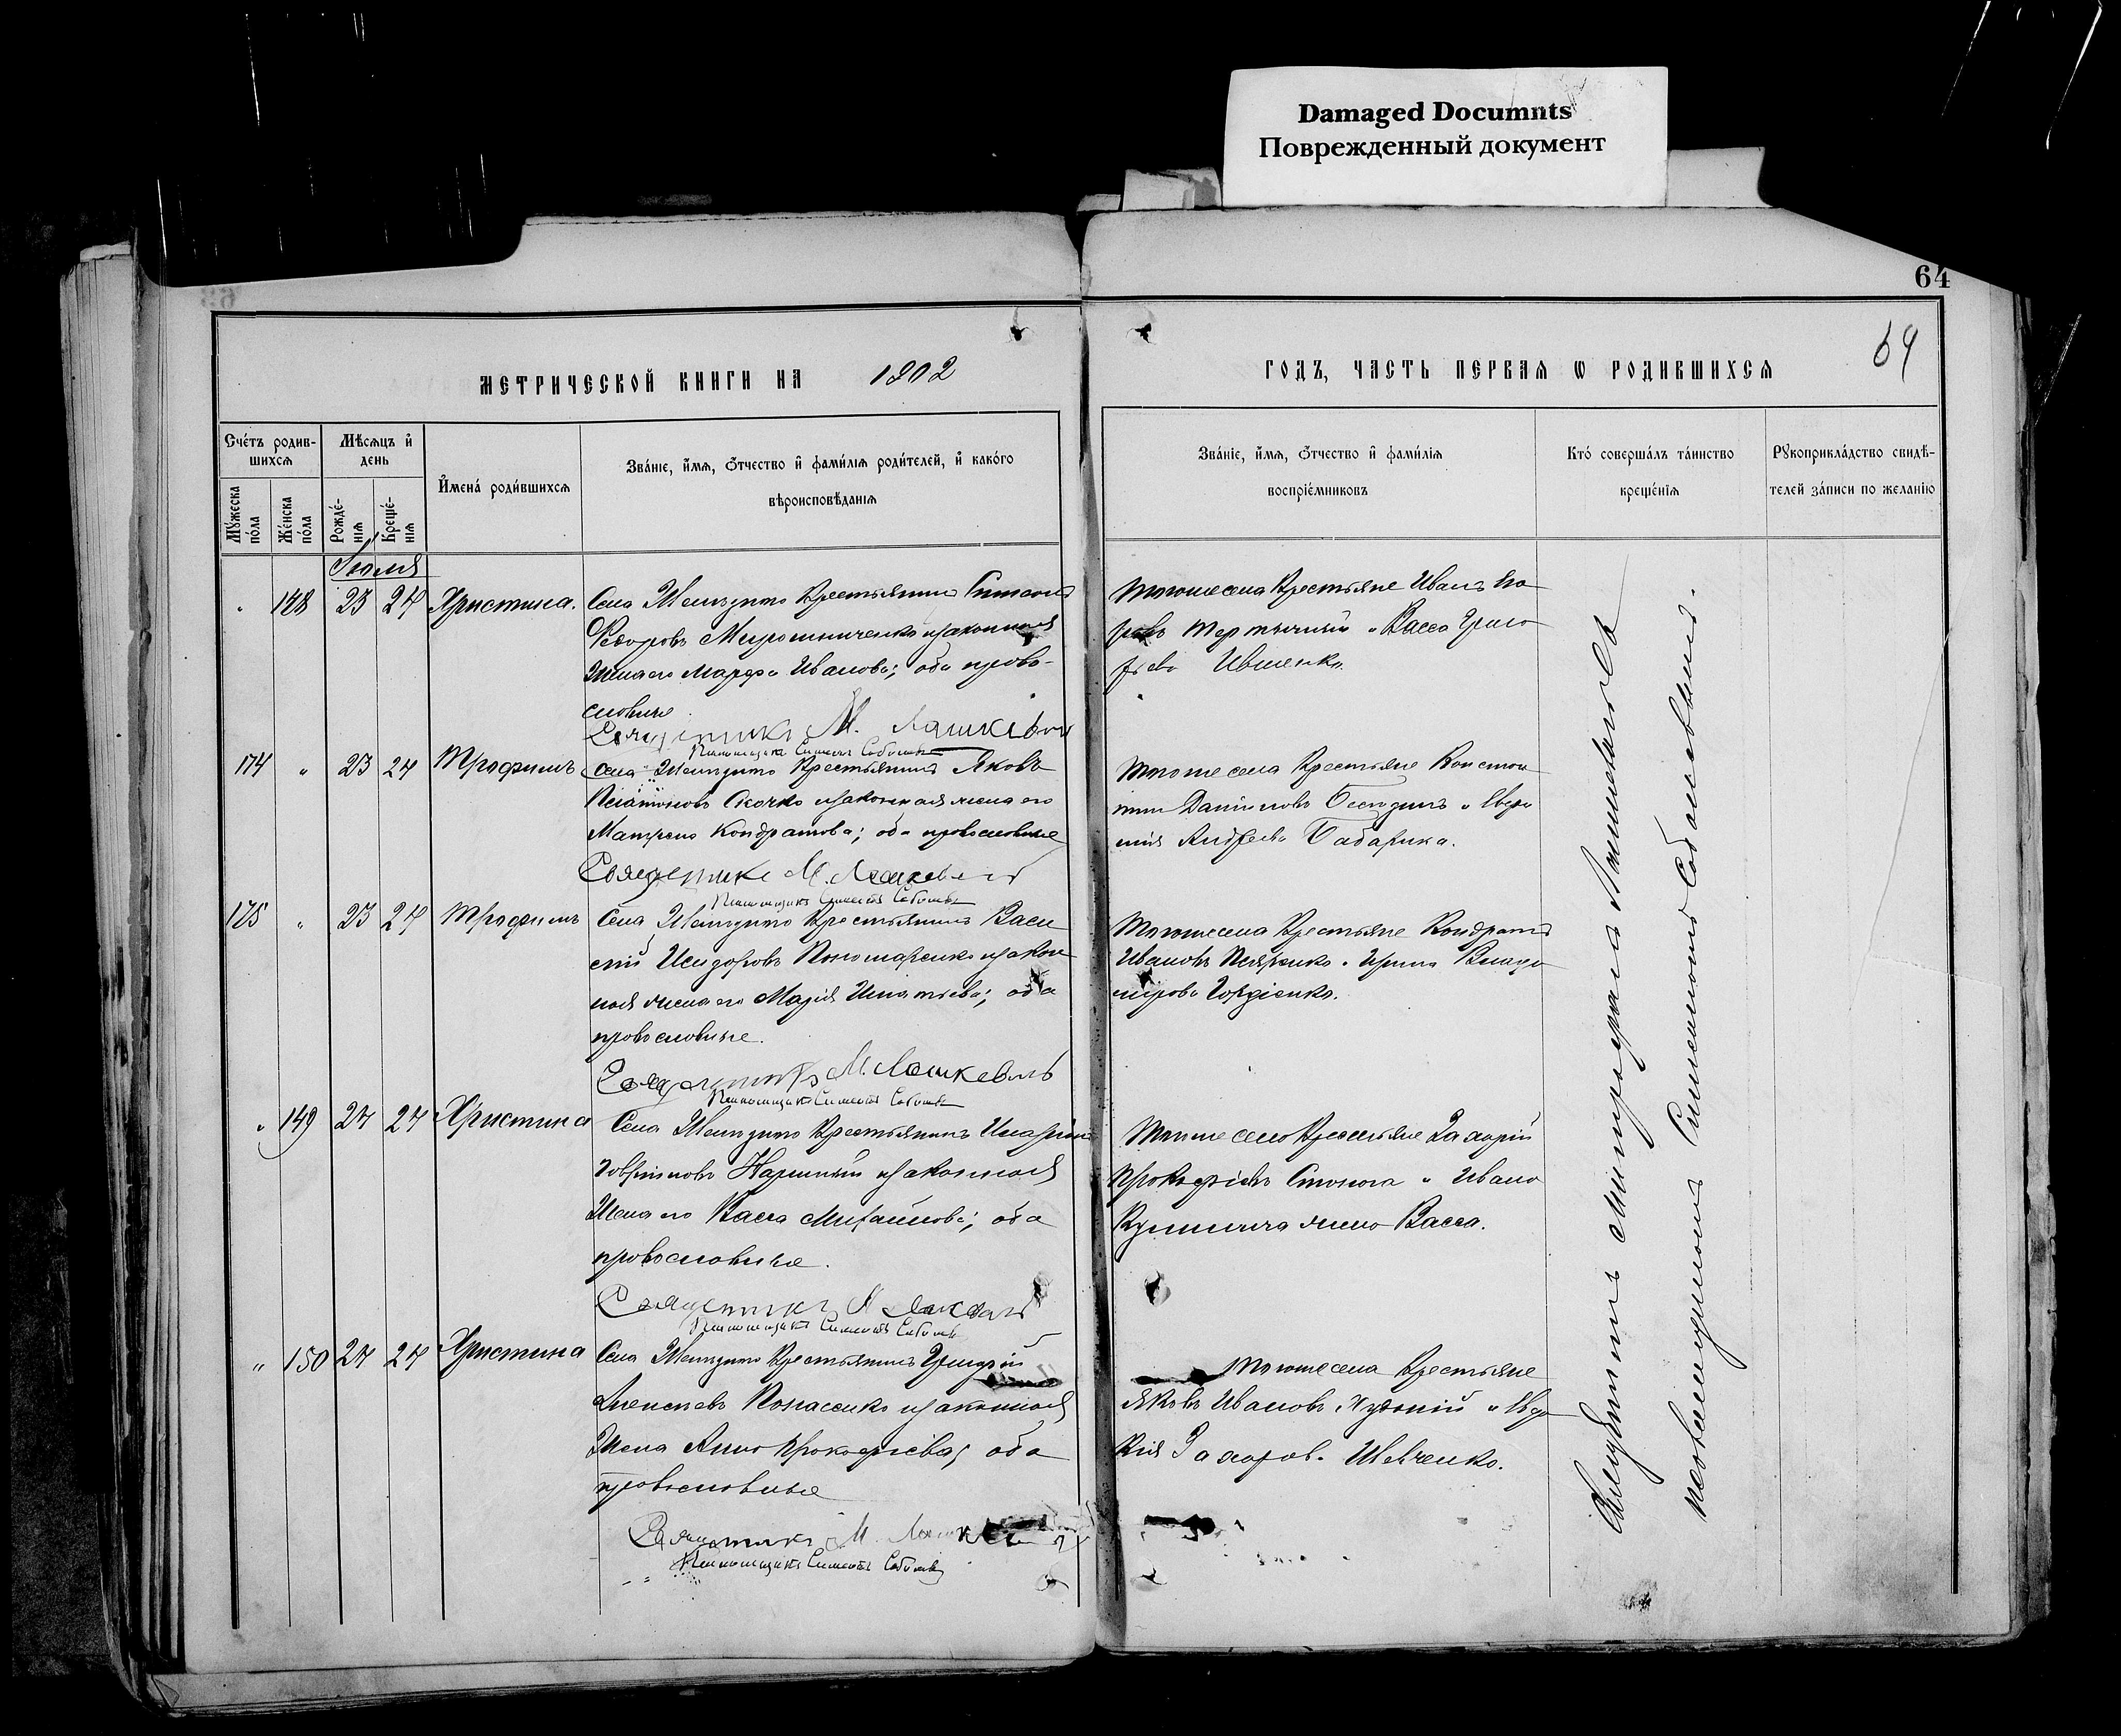 Damaged Documnts
Поврежденный документ
64
64
МЕТРИЧЕСКОЙ КНИГИ НА 1902
ГОДЪ, ЧАСТЬ ПЕРВАЯ Ѡ РОДИВШИХСЯ
Счетъ родив-
шихся
Мѣсяцъ и
день
Мужеска
пола
Женска
пола
Рожде-
нія
Креще-
нія
Имена родившихся
Званіе, имя, отчество и фамилія родителей, и какого
вѣроисповѣданія
Званіе, имя, отчество и фамилія
воспріемниковъ
Кто совершалъ таинство
крещенія
Рукоприкладство свидѣ-
телей записи по желанію
" 148 23 24 Христина.
Села крестьянинъ
Федоровъ Мирошниченко и законная
жена его Марфа Иванова; оба право-
славные
Священникъ М. Лашкевичъ
Псаломщикъ Симеонъ
Тогоже села крестьяне Иванъ
и Васса Григо
рьева Ивченко.
174 " 23 24 Трофимъ
Села крестьянинъ Яковъ
Платоновъ Скочко и законная жена его
Матрена Кондратова; оба православные
Священникъ М. Лашкевичъ
Псаломщикъ Симеонъ
Тогоже села крестьяне Констан
тинъ Даниловъ и
Андреева Бабарика.
175 " 23 24 Трофимъ
Села крестьянинъ Васи
лій Исидоровъ Пономаренко и закон
ная жена его Марія Игнатьева; оба
православные.
Священникъ М. Лашкевичъ
Псаломщикъ Симеонъ
Тогоже села крестьяне Кондратъ
Ивановъ и Ирина Влади
мірова Гордіенко.
" 149 24 24 Христина
Села крестьянинъ Иларіонъ
Гавріиловъ и законная
жена его Васса Михайлова; оба
православные.
Священникъ М. Лашкевичъ
Псаломщикъ Симеонъ
Тогоже села крестьяне Захарій
Прокофіевъ Стонога и Ивана
жена Васса.
" 150 24 24 Христина
Села крестьянинъ
Алексѣевъ и законная
жена Анна Прокофіева; оба
православные
Священникъ М. Лашкевичъ
Псаломщикъ Симеонъ
Тогоже села крестьяне
Яковъ Ивановъ и Евдо
кія Захарова Шевченко.
Священникъ Митрофанъ Лашкевичъ
псаломщикомъ Симеономъ